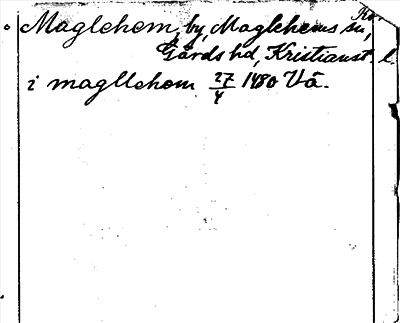 Kr.
Maglehem, by, Maglehems sn,
Gärds hd, Kristianst. l.
i magllehem 27/4 1480 Vä.